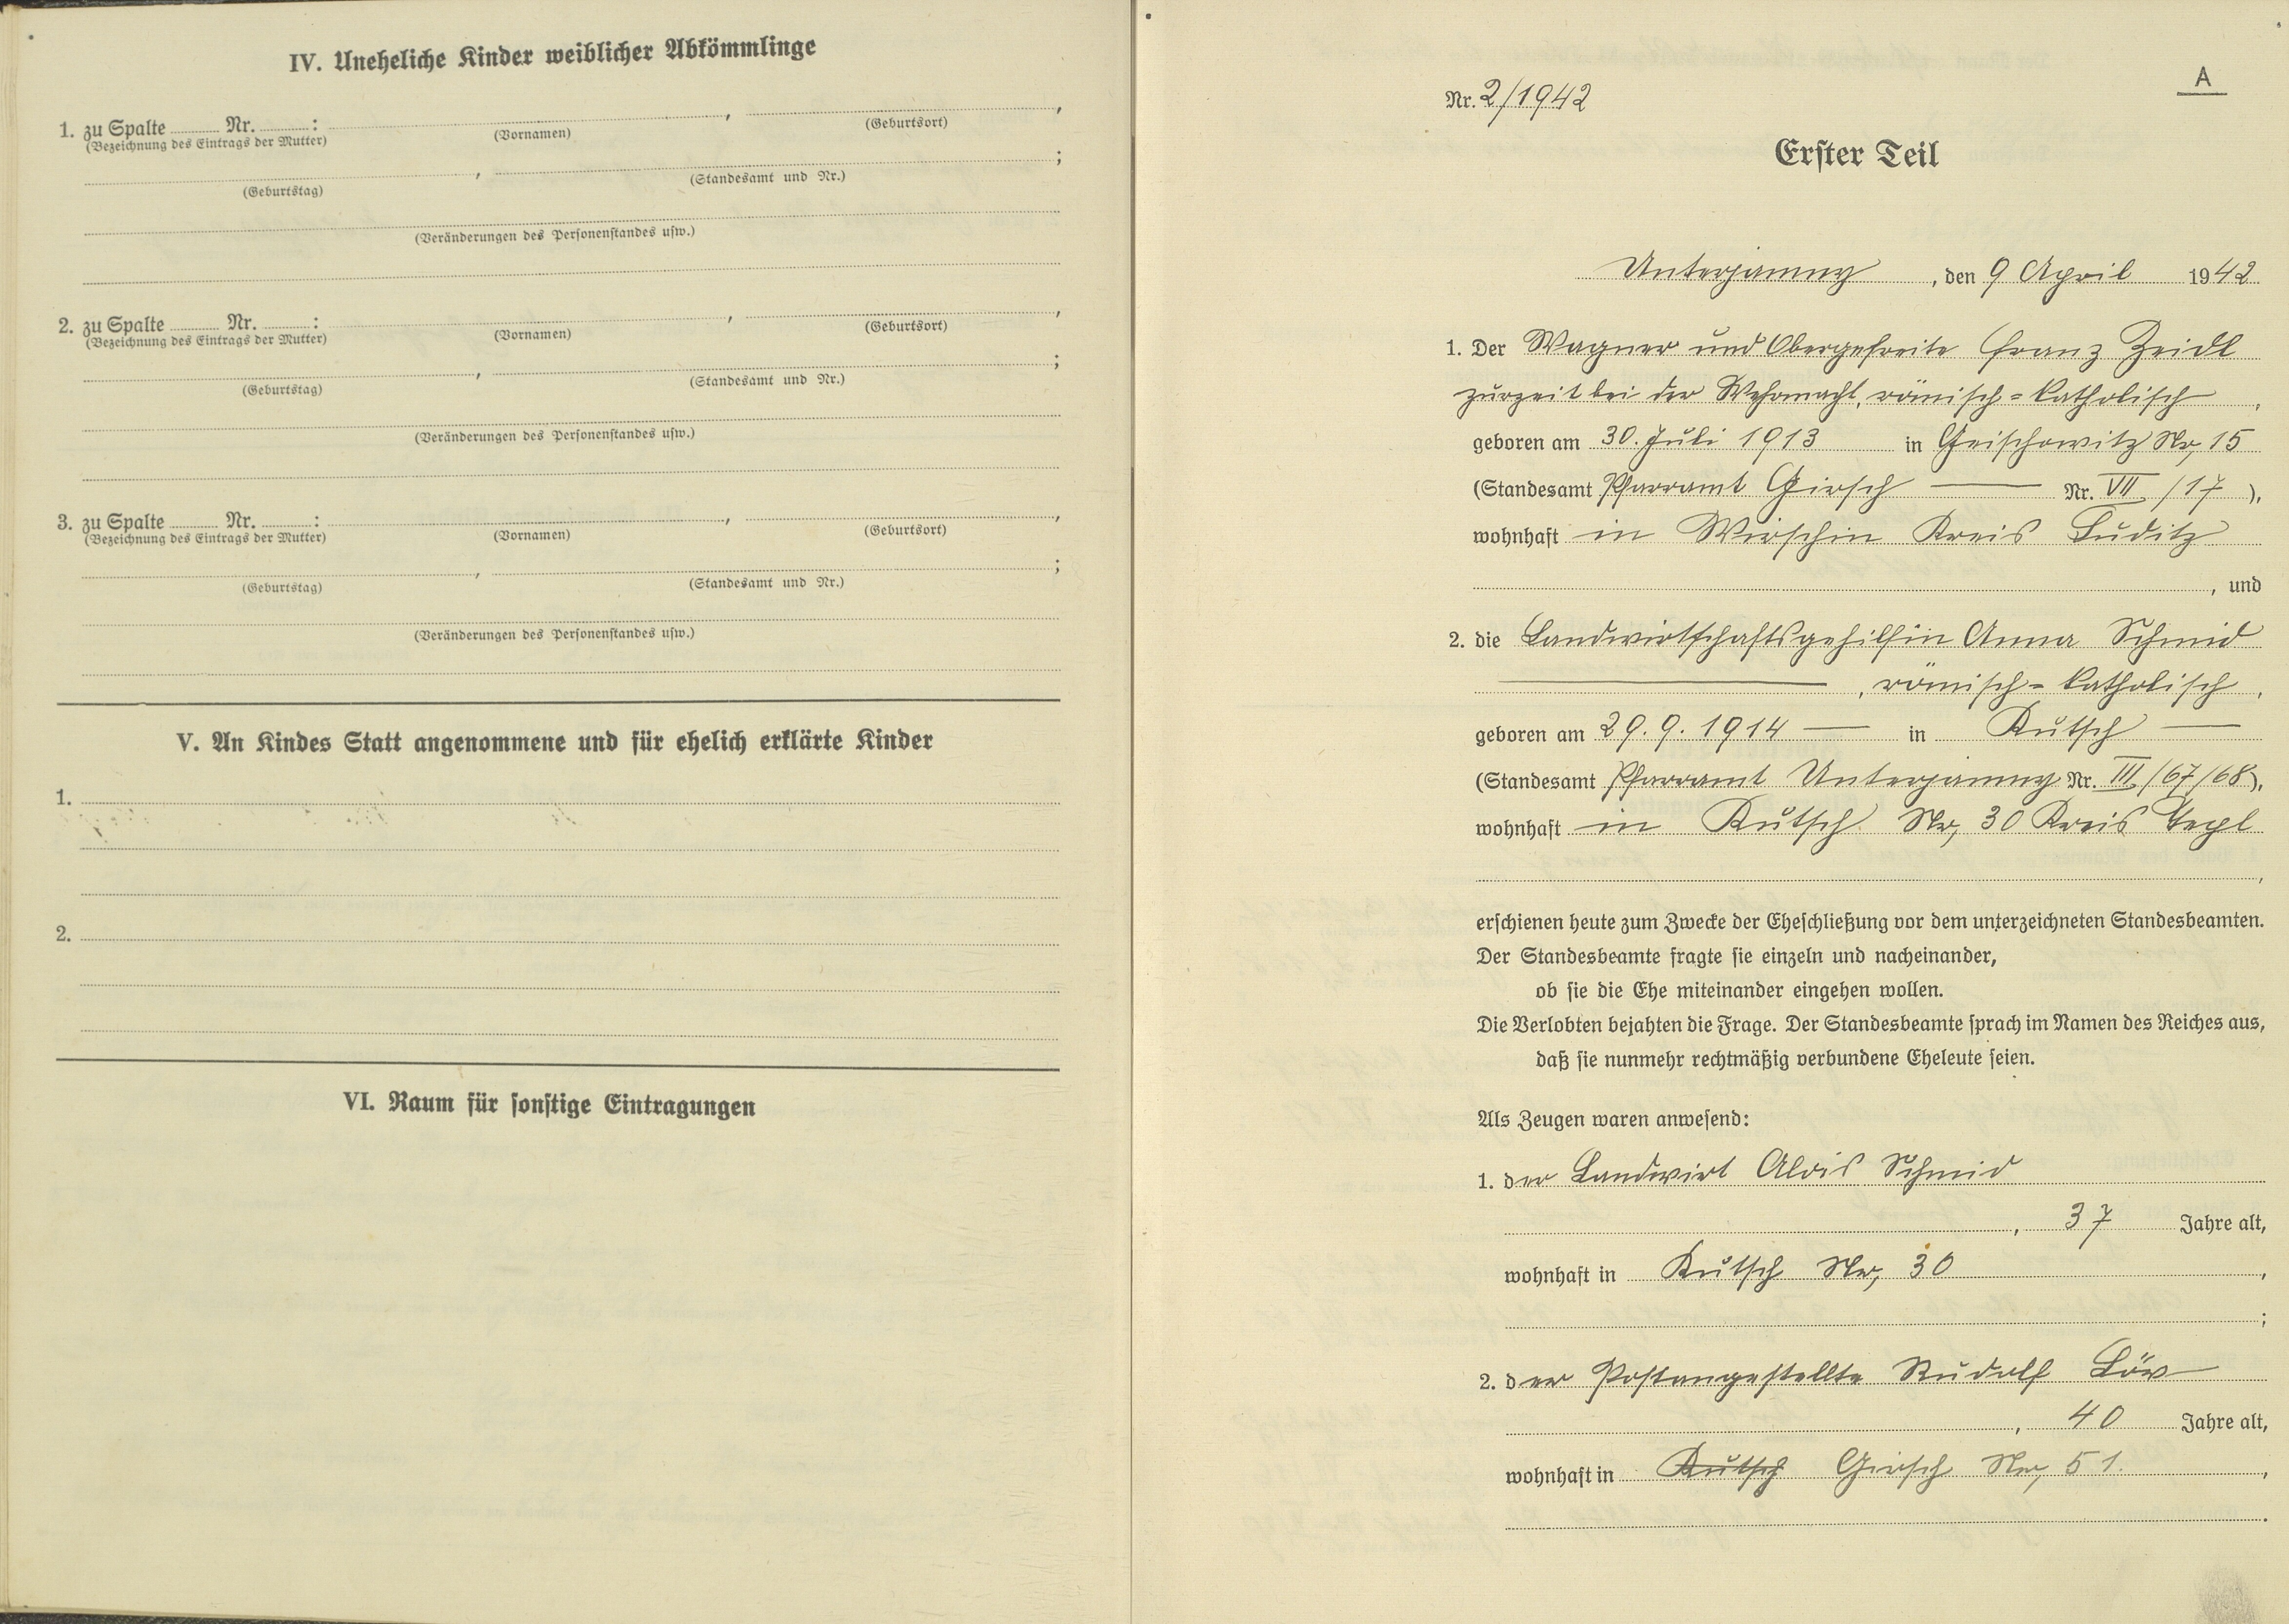 IV. Uneheliche Kinder weiblicher Abkömmlinge
1. zu Spalte ........ Nr. ........: ........, ........,
(Bezeichnung des Eintrags der Mutter) (Vornamen) (Geburtsort)
........, ........;
(Geburtstag) (Standesamt und Nr.)
(Veränderungen des Personenstandes usw.)
2. zu Spalte ........ Nr. ........: ........, ........,
(Bezeichnung des Eintrags der Mutter) (Vornamen) (Geburtsort)
........, ........;
(Geburtstag) (Standesamt und Nr.)
(Veränderungen des Personenstandes usw.)
3. zu Spalte ........ Nr. ........: ........, ........,
(Bezeichnung des Eintrags der Mutter) (Vornamen) (Geburtsort)
........, ........;
(Geburtstag) (Standesamt und Nr.)
(Veränderungen des Personenstandes usw.)
V. An Kindes Statt angenommene und für ehelich erklärte Kinder
1.
2.
VI. Raum für sonstige Eintragungen
A
Nr. 2/1942
Erster Teil
Unterjamny, den 9 April 1942
1. Der Wagner und Obergefreite Franz Zeidl
zurzeit bei der Wehrmacht, römisch-katholisch,
geboren am 30. Juli 1913 in Geischowitz Nr, 15
(Standesamt Pfarramt Girsch — Nr. VII /17 ),
wohnhaft in Wirschin Kreis Luditz
, und
2. die Landwirtschaftsgehilfin Anna Schmid
—, römisch-katholisch,
geboren am 29. 9. 1914 — in Kutsch —
(Standesamt Pfarramt Unterjamny Nr. III /67/68),
wohnhaft in Kutsch Nr, 30 Kreis Tepl
,
erschienen heute zum Zwecke der Eheschließung vor dem unterzeichneten Standesbeamten.
Der Standesbeamte fragte sie einzeln und nacheinander,
ob sie die Ehe miteinander eingehen wollen.
Die Verlobten bejahten die Frage. Der Standesbeamte sprach im Namen des Reiches aus,
daß sie nunmehr rechtmäßig verbundene Eheleute seien.
Als Zeugen waren anwesend:
1. der Landwirt Alois Schmid
, 37 Jahre alt,
wohnhaft in Kutsch Nr, 30,
;
2. der Postangestellte Rudolf Löw
, 40 Jahre alt,
wohnhaft in Kutsch Girsch Nr, 51.,
.